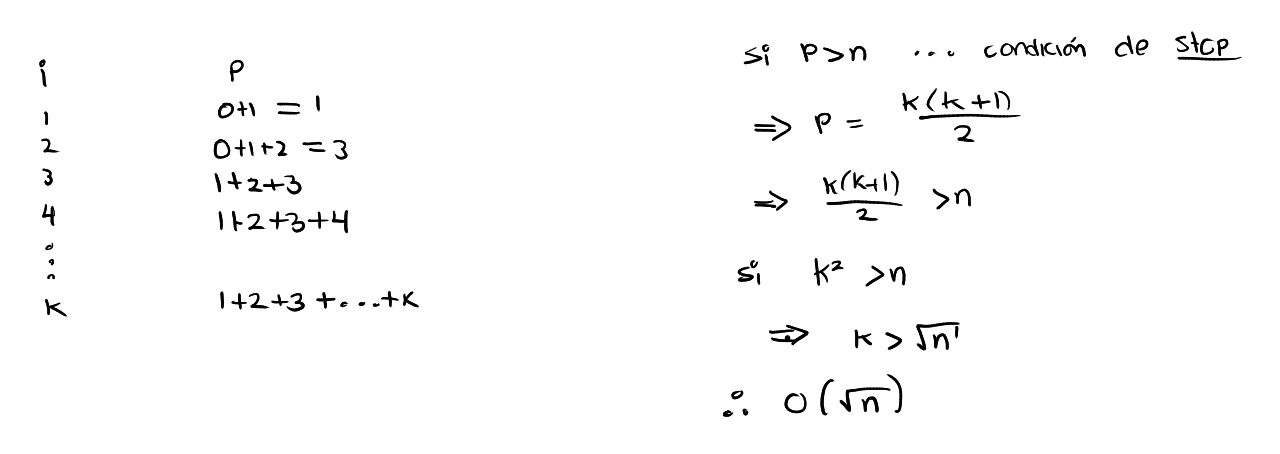 i p
1 0+1 = 1
2 0+1+2 = 3
3 1+2+3
4 1+2+3+4
⋮
k 1+2+3+...+k
si p>n ... condición de stop
⇒ p = k(k+1)/2
⇒ k(k+1)/2 >n
si k² >n
⇒ k > √n
∴ O(√n)